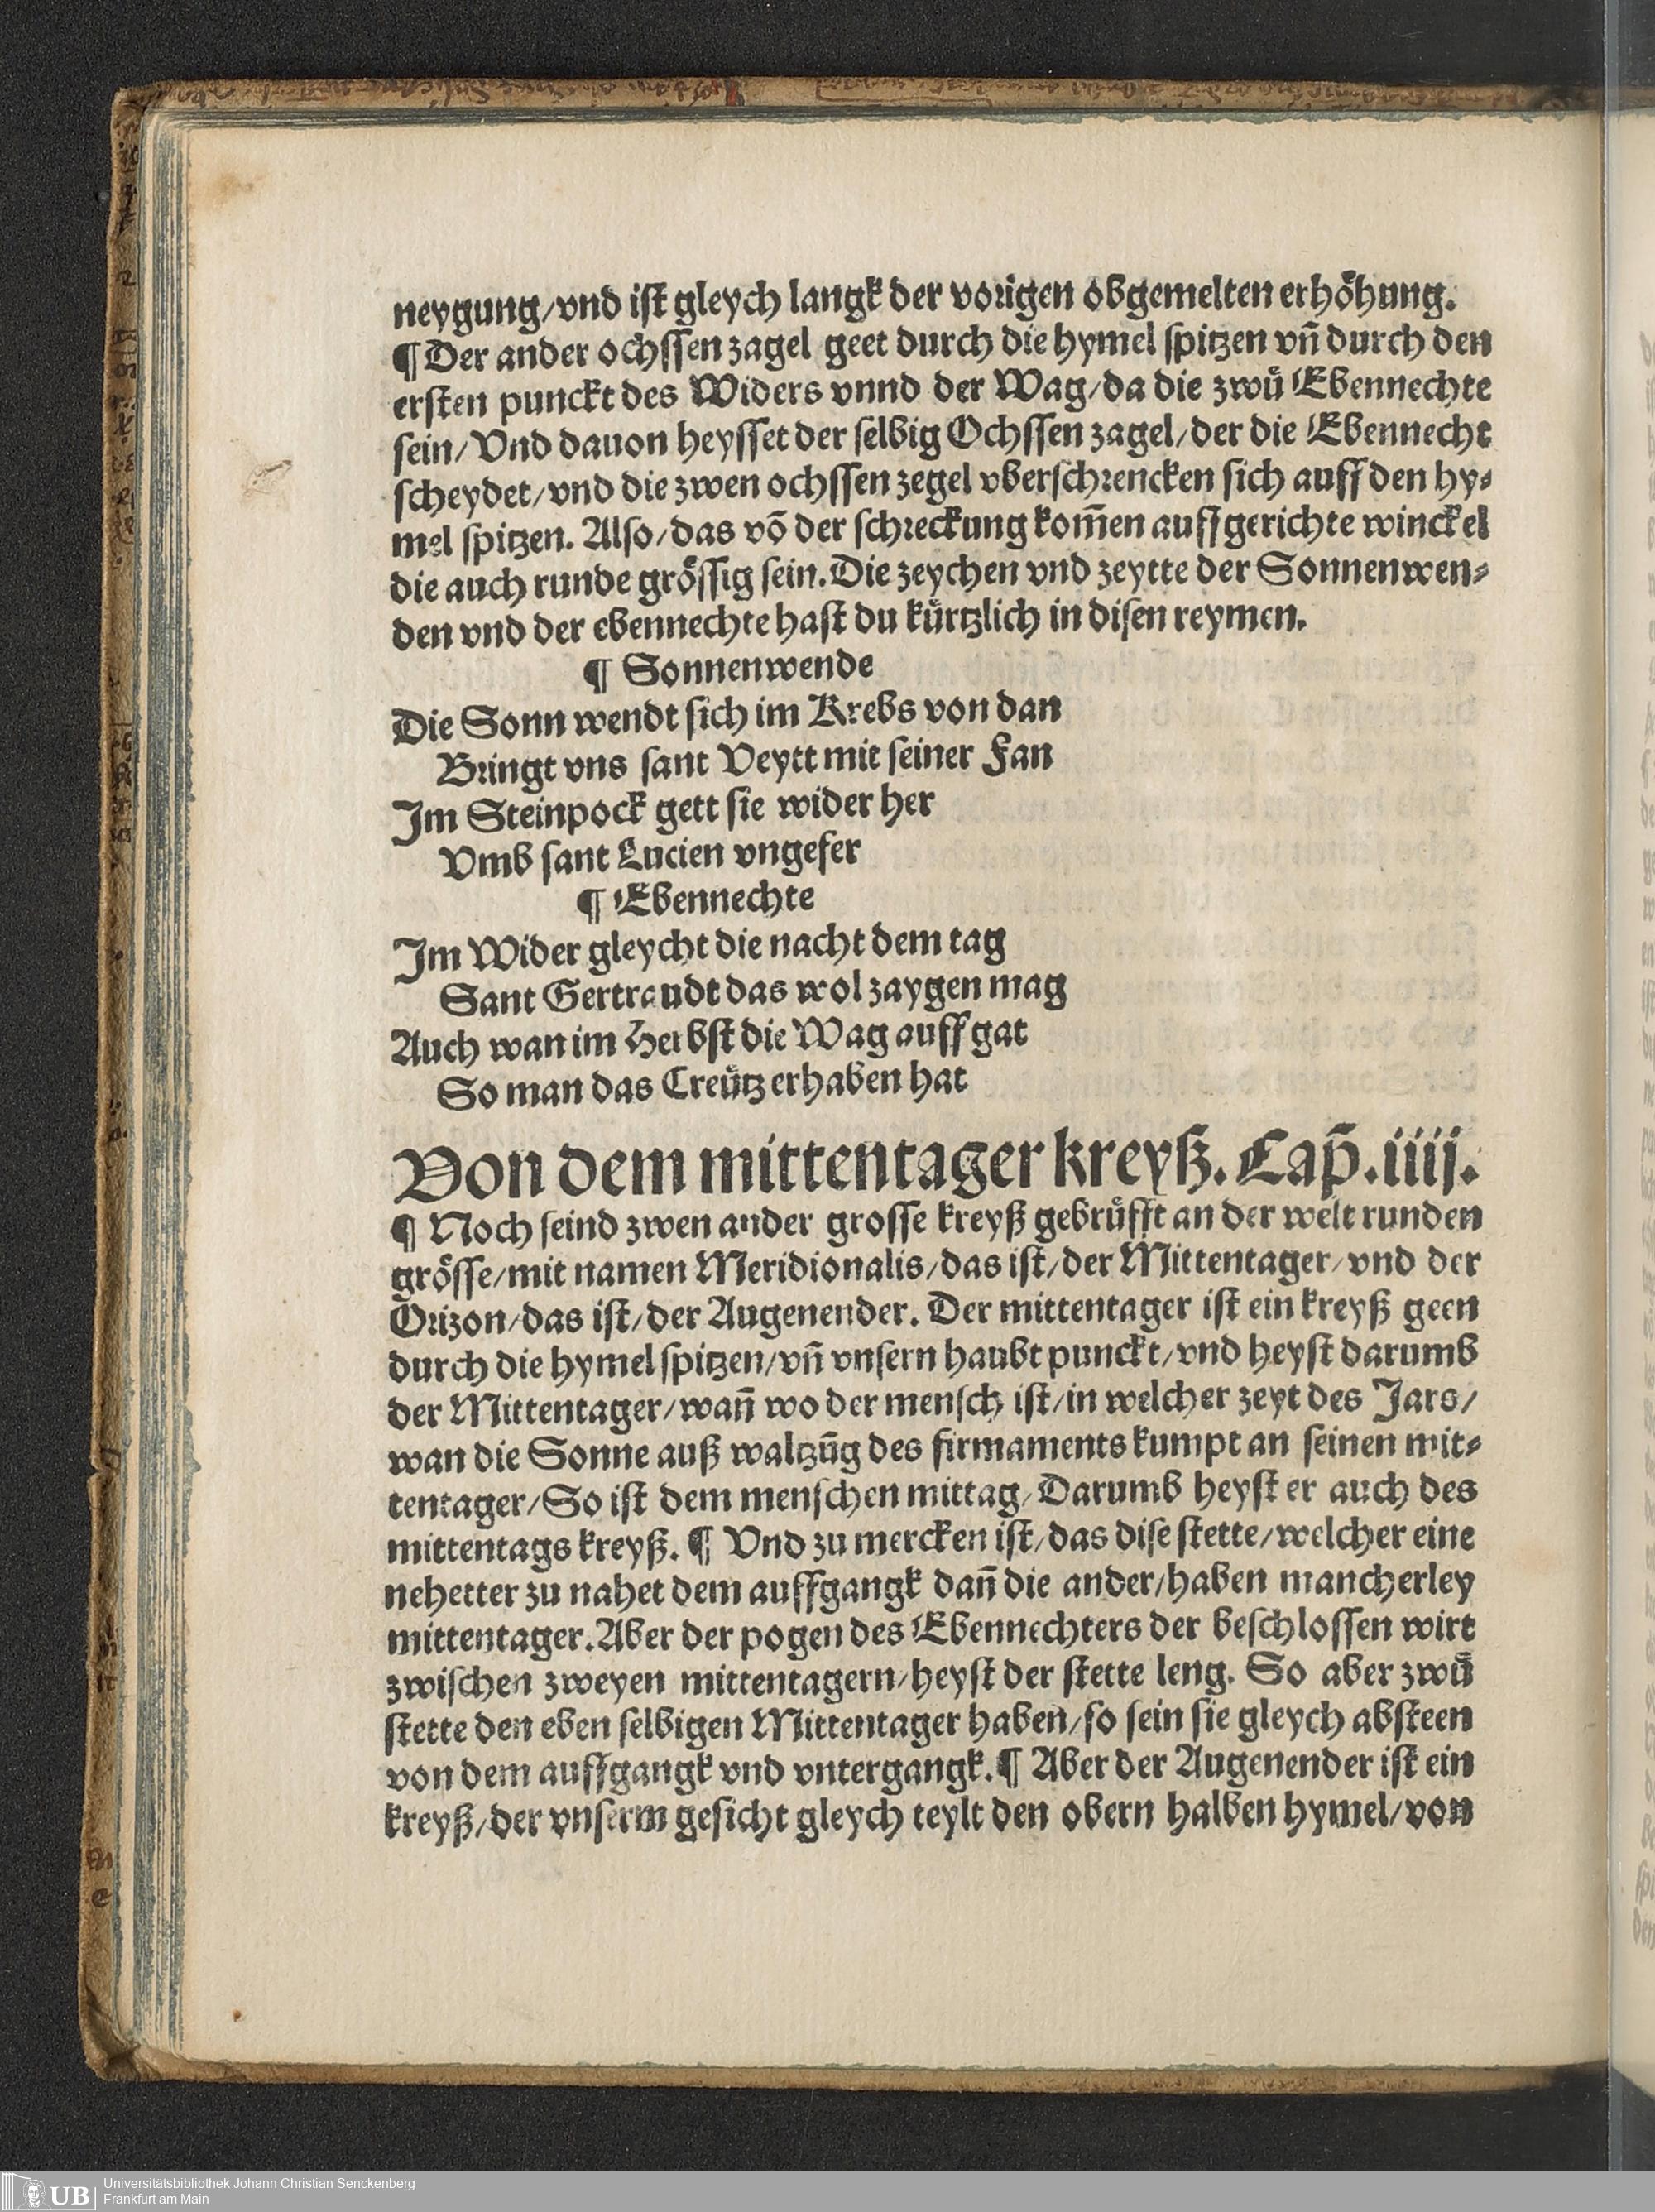 neygung/vnd iſt gleych langk der vorigen obgemelten erhoͤhung.
¶ Der ander ochſſen zagel geet durch die hymel ſpitzen vn̄ durch den
erſten punckt des Widers vnnd der Wag/da die zwuͤ Ebennechte
ſein/Vnd dauon heyſſet der ſelbig Ochſſen zagel/der die Ebennecht
ſcheydet/vnd die zwen ochſſen zegel vberſchrencken ſich auff den hy⸗
mel ſpitzen. Alſo/das vō der ſchreckung kom̄en auffgerichte winckel
die auch runde groͤſſig ſein. Die zeychen vnd zeytte der Sonnenwen⸗
den vnd der ebennechte haſt du kuͤrtzlich in diſen reymen.
¶ Sonnenwende
Die Sonn wendt ſich im Krebs von dan
Bringt vns ſant Veytt mit ſeiner Fan
Im Steinpock gett ſie wider her
Vmb ſant Lucien vngefer
¶ Ebennechte
Im Wider gleycht die nacht dem tag
Sant Gertraudt das wol zaygen mag
Auch wan im Herbſt die Wag auff gat
So man das Creuͤtz erhaben hat
Von dem mittentager kreyß. Cap̄. iiij.
¶ Noch ſeind zwen ander groſſe kreyß gebruͤfft an der welt runden
groͤſſe/mit namen Meridionalis/das iſt/der Mittentager/vnd der
Orizon/das iſt/der Augenender. Der mittentager iſt ein kreyß geen
durch die hymel ſpitzen/vn̄ vnſern haubt punckt/vnd heyſt darumb
der Mittentager/wan̄ wo der menſch iſt/in welcher zeyt des Jars/
wan die Sonne auß waltzūg des firmaments kumpt an ſeinen mit⸗
tentager/So iſt dem menſchen mittag/Darumb heyſt er auch des
mittentags kreyß. ¶ Vnd zu mercken iſt/das diſe ſtette/welcher eine
nehetter zu nahet dem auffgangk dan̄ die ander/haben mancherley
mittentager. Aber der pogen des Ebennechters der beſchloſſen wirt
zwiſchen zweyen mittentagern/heyſt der ſtette leng. So aber zwuͤ
ſtette den eben ſelbigen Mittentager haben/ſo ſein ſie gleych abſteen
von dem auffgangk vnd vntergangk. ¶ Aber der Augenender iſt ein
kreyß/der vnſerm geſicht gleych teylt den obern halben hymel/von
UB
Universitätsbibliothek Johann Christian Senckenberg
Frankfurt am Main